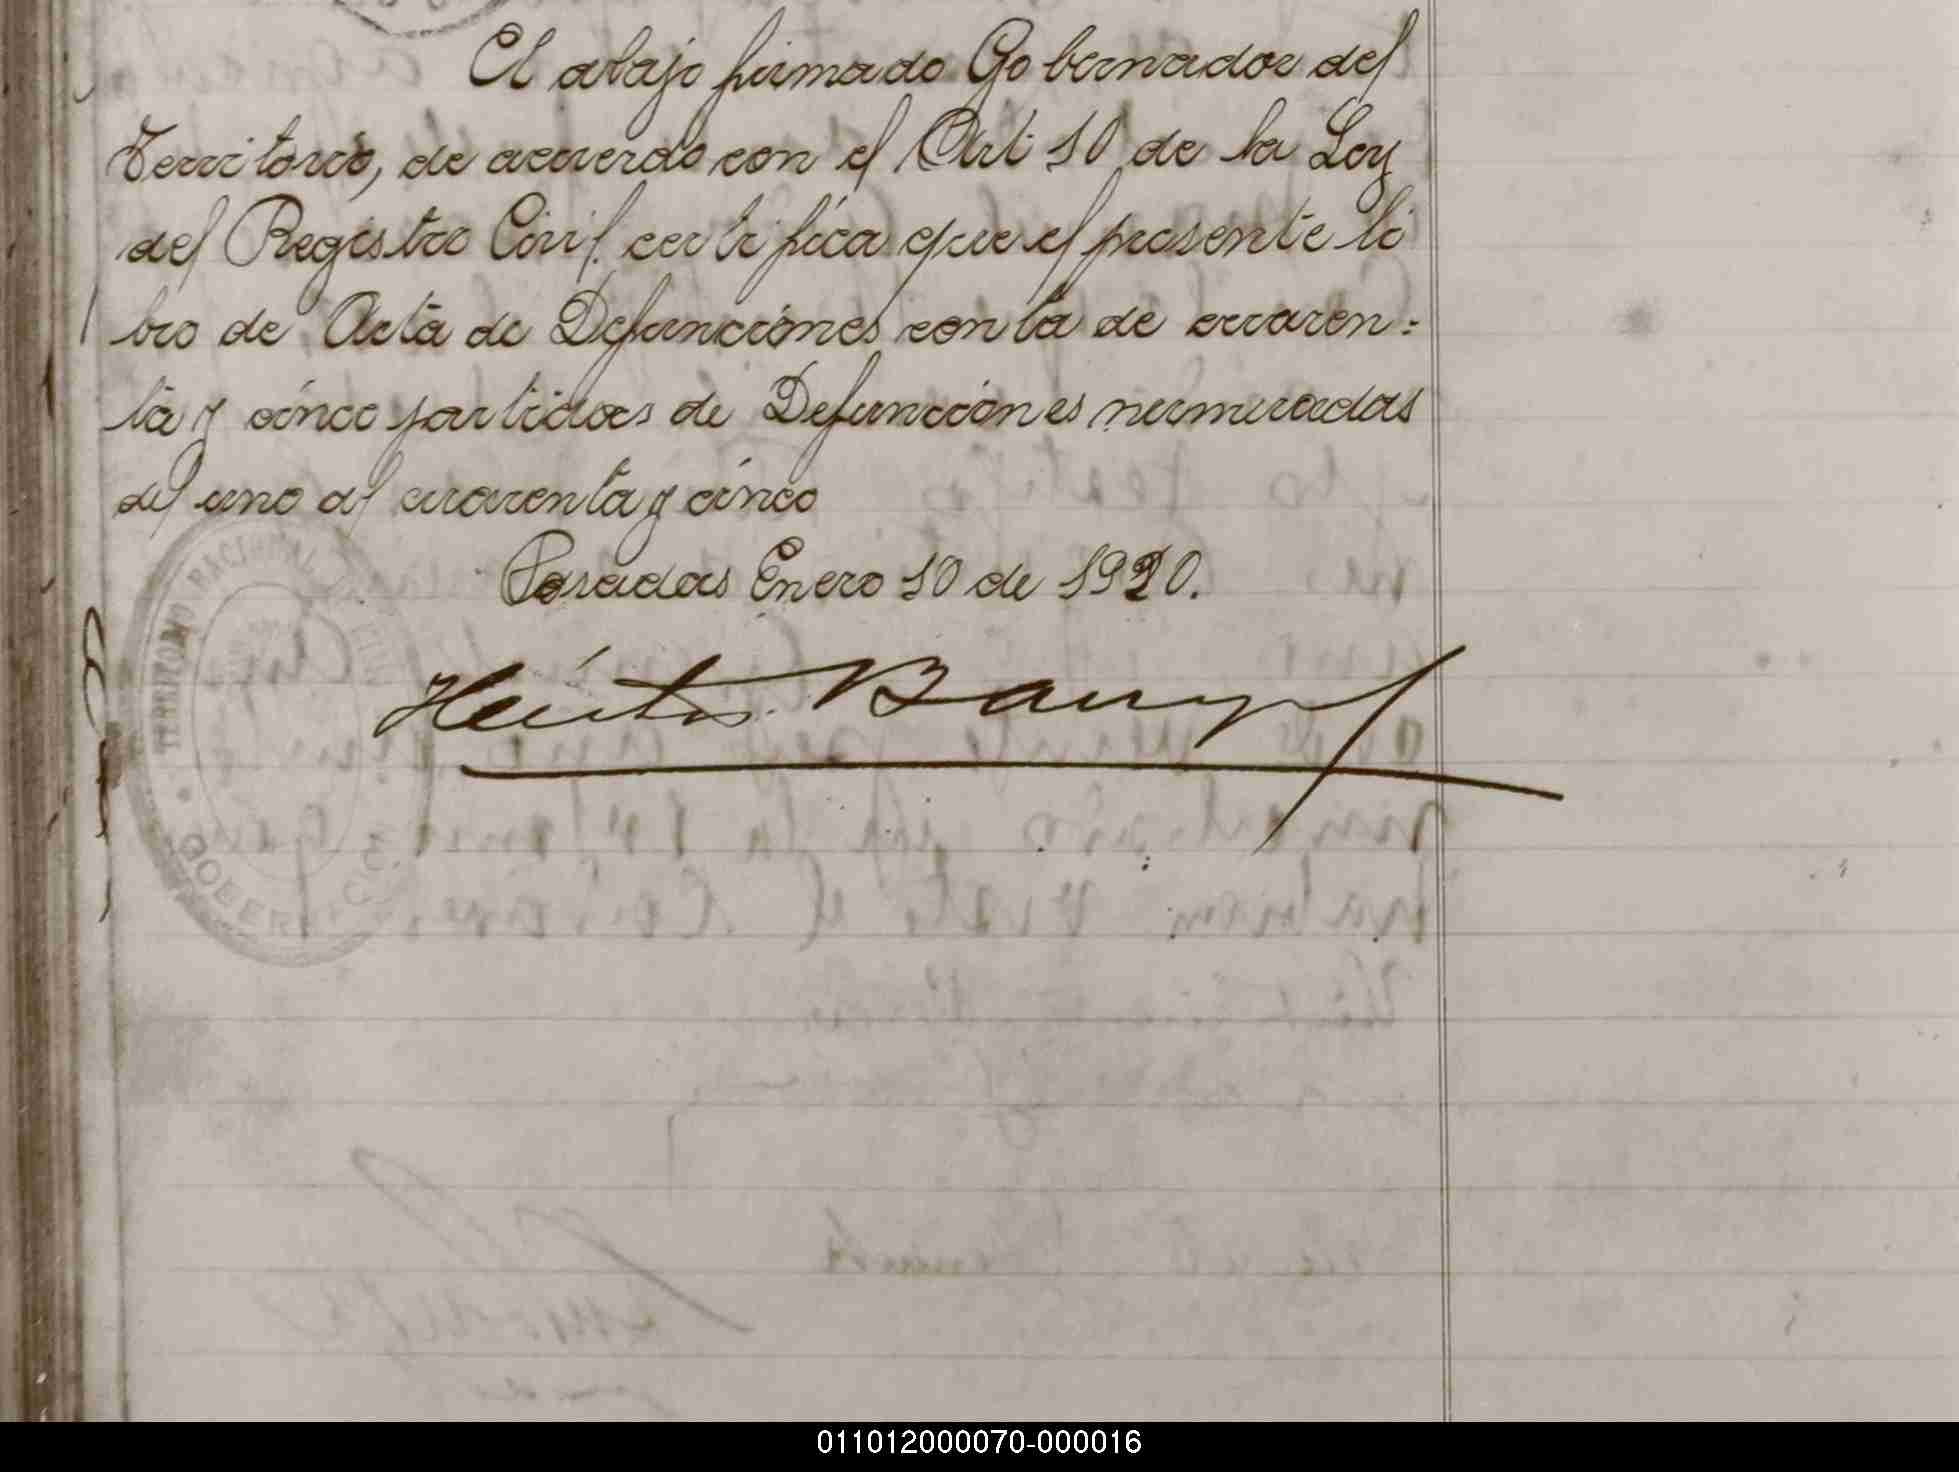 El abajo firmado Gobernador del
Territorio, de acuerdo con el Art 10 de la Ley
del Registro Civil. certifica que el presente li
bro de Acta de Defunciones conta de cuaren=
ta y cinco partidas de Defunciones numeradas
del uno al cuarenta y cinco
Posadas Enero 10 de 1920.
Héctor Barreyro
TERRITORIO NACIONAL
GOBERNACION
011012000070-000016